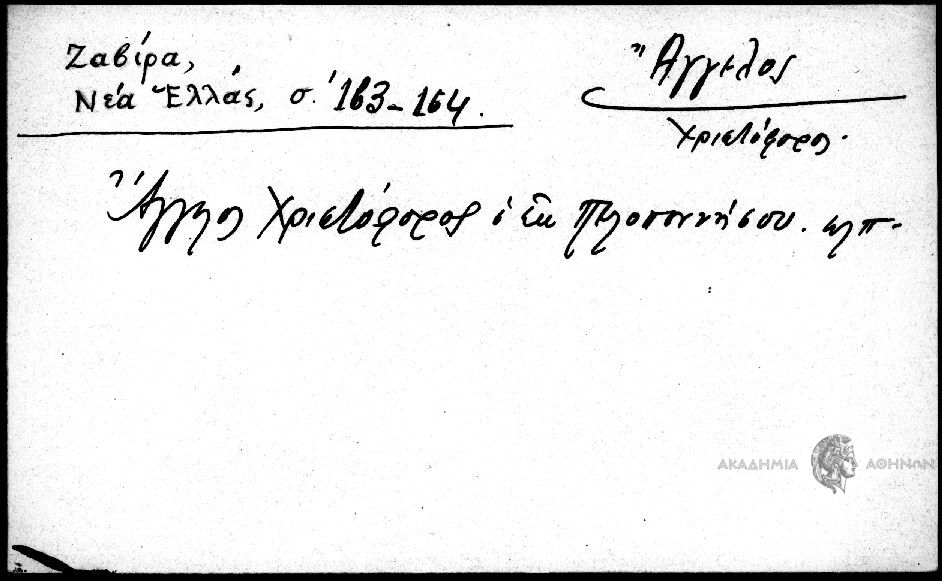 Ζαβίρα,
Νέα Ἑλλάς, σ. 163-164.
Ἄγγελος
Χριστόφορος.
Ἄγγελος Χριστόφορος ὁ ἐκ Πελοποννήσου. κλπ-
ΑΚΑΔΗΜΙΑ ΑΘΗΝΩΝ